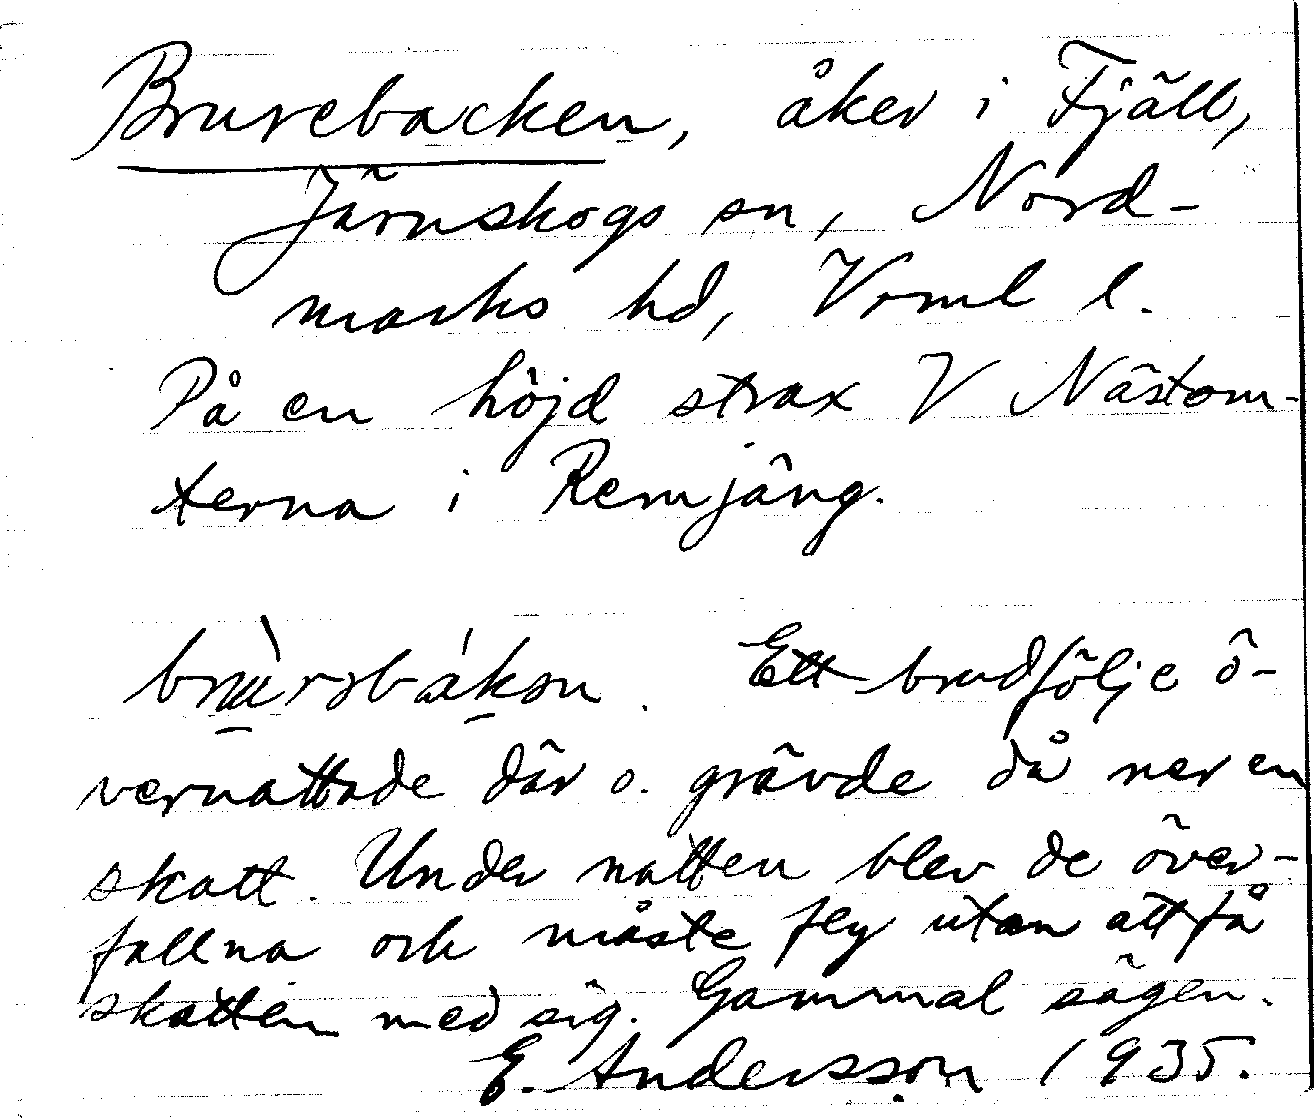 Brurebacken, åker i Fjäll,
Järnskogs sn, Nord-
marks hd, Vrml l.
På en höjd strax V Nästom-
terna i Remjäng.
Ett brudfölje ö-
vernattade där o. grävde då ner en
skatt. Under natten blev de över-
fallna och måste fly utan att få
skatten med sig. Gammal sägen.
E. Andersson 1935.